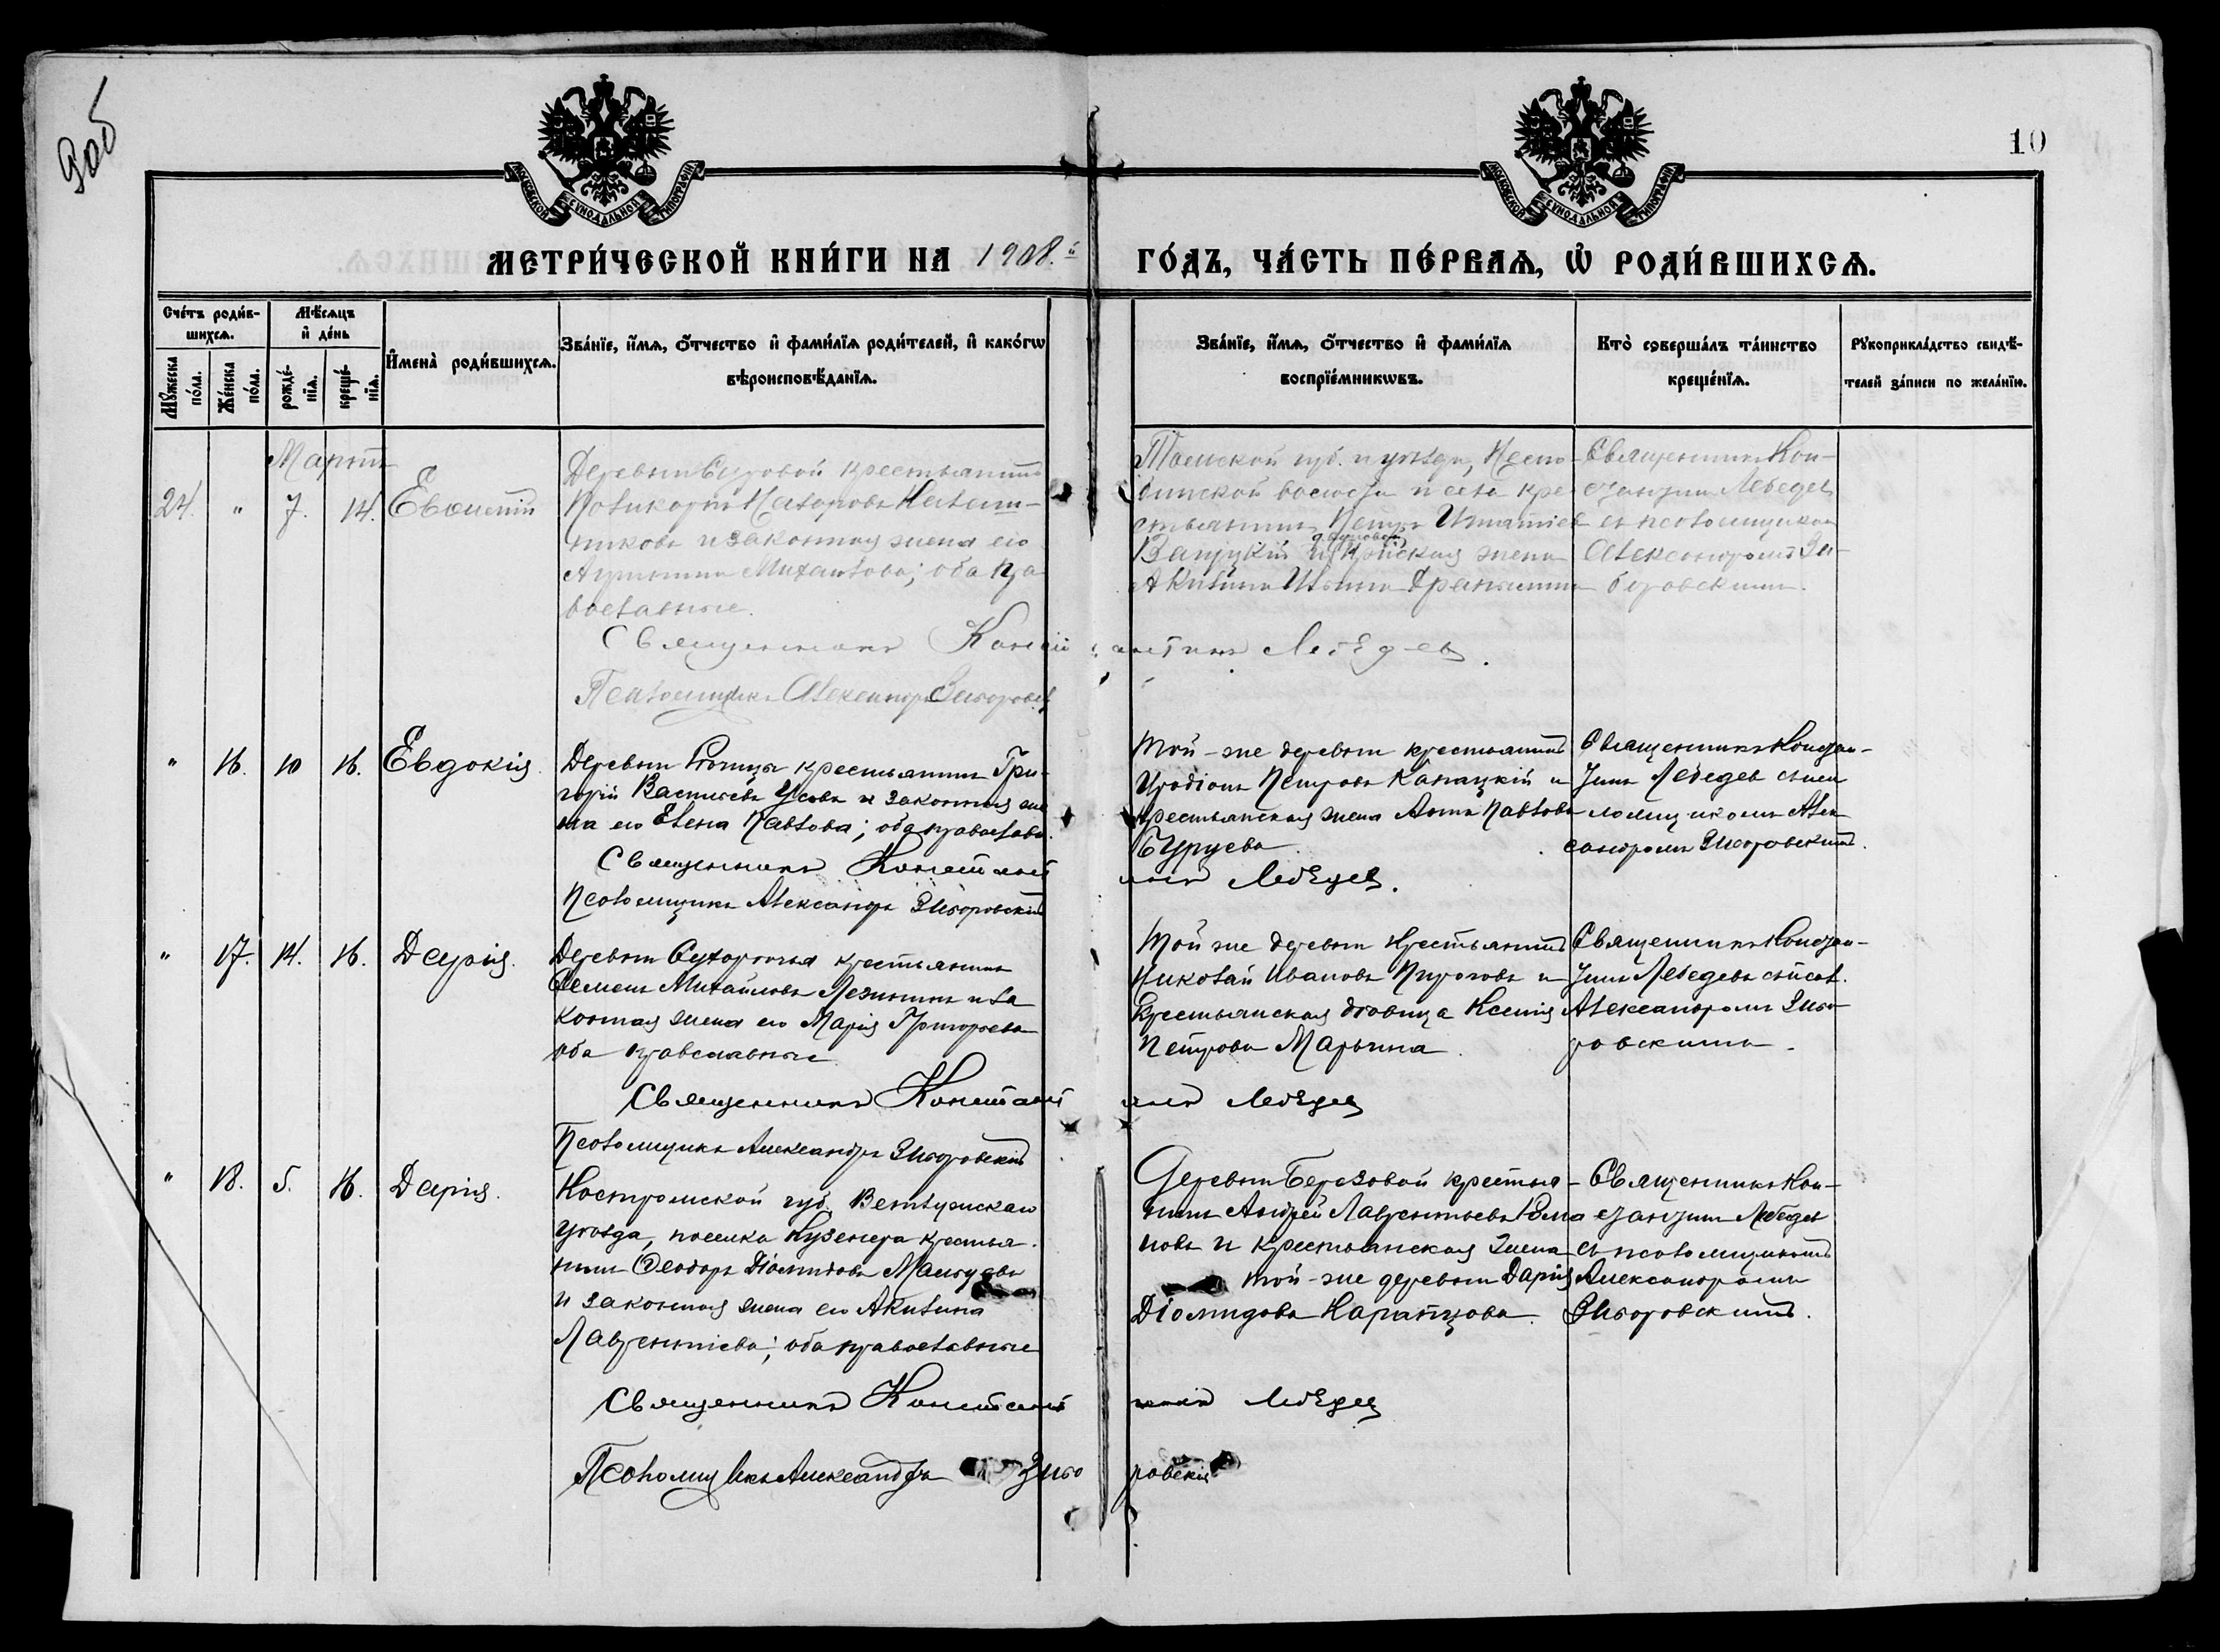 9об
10
МОСКОВСКОЙ СѴНОДАЛЬНОЙ ТИПОГРАФІИ
МОСКОВСКОЙ СѴНОДАЛЬНОЙ ТИПОГРАФІИ
МЕТРИ́ЧЕСКОЙ КНИ́ГИ НА 1908.й ГО́ДЪ, ЧА́СТЬ ПЕ́РВАѦ, Ѡ҆ РОДИ́ВШИХСѦ.
Сче́тъ роди́в-
шихсѧ.
Мꙋ́жеска по́ла.
Же́нска по́ла.
Мѣ́сѧцъ
и҆ де́нь
рожде́-
нїѧ.
креще́-
нїѧ.
И҆мена̀ роди́вшихсѧ.
Зва́нїе, и҆́мѧ, ѻ҆́тчество и҆ фами́лїѧ роди́телей, и҆ како́гѡ
вѣроисповѣ́данїѧ.
Зва́нїе, и҆́мѧ, ѻ҆́тчество и҆ фами́лїѧ
воспрїе́мникѡвъ.
Кто̀ соверша́лъ та́инство
креще́нїѧ.
Рꙋкоприкла́дство свидѣ́-
телей за́писи по жела́нїю.
Мартъ
24. " 7. 14. Евѳимій
Деревни крестьянинъ
Поликарпъ
никовъ и законная жена его
Михайлова; оба пра
вославные.
Священникъ Константинъ Лебедевъ.
Псаломщикъ Александръ Зиборовскій
Томской губ. и уѣзда,
волости и села кре
стьянинъ Петръ Игнатіев
и жена
Акилина Ильина
Священникъ Кон-
стантинъ Лебедевъ
съ псаломщикомъ
Александромъ Зи-
боровскимъ.
" 16. 10 16. Евдокія.
Деревни крестьянинъ Гри-
горій Васильевъ Усовъ и законная же
на его Елена Павлова; оба православн.
Священникъ Константинъ Лебедев.
Псаломщикъ Александръ Зиборовскій
Той-же деревни крестьянинъ
Иродіонъ Петровъ Канацкій и
крестьянская жена Анна Павлова
Бурцева.
Священникъ Констан-
тинъ Лебедев съ пса
ломщикомъ Алек
сандромъ Зиборовскимъ.
" 17. 14. 16. Дарія.
Деревни Сухоречья крестьянинъ
Семенъ Михайловъ и за
конная жена его Марія Григорьева
оба православные
Священникъ Константинъ Лебедев
Псаломщикъ Александръ Зиборовскій
Той же деревни крестьянинъ
Николай Ивановъ Пироговъ и
Крестьянская вдовица Ксенія
Петрова Марьина.
Священникъ Констан-
тинъ Лебедевъ съ псал.
Александромъ Зибо
ровскимъ.
" 18. 5. 16. Дарія.
Костромской губ. Ветлужскаго
уѣзда, поселка крестья
нинъ Ѳеодоръ Діомидовъ
и законная жена его Акилина
Лаврентіева; оба православные
Священникъ Константинъ Лебедев
Псаломщикъ Александръ Зибо ровскій
Деревни Березовой крестья-
нинъ Андрей Лаврентьевъ Рома
новъ и крестьянская жена
той-же деревни Дарія
Діомидова Карапузова.
Священникъ Кон-
стантинъ Лебедев
съ псаломщикомъ
Александромъ
Зиборовскимъ.